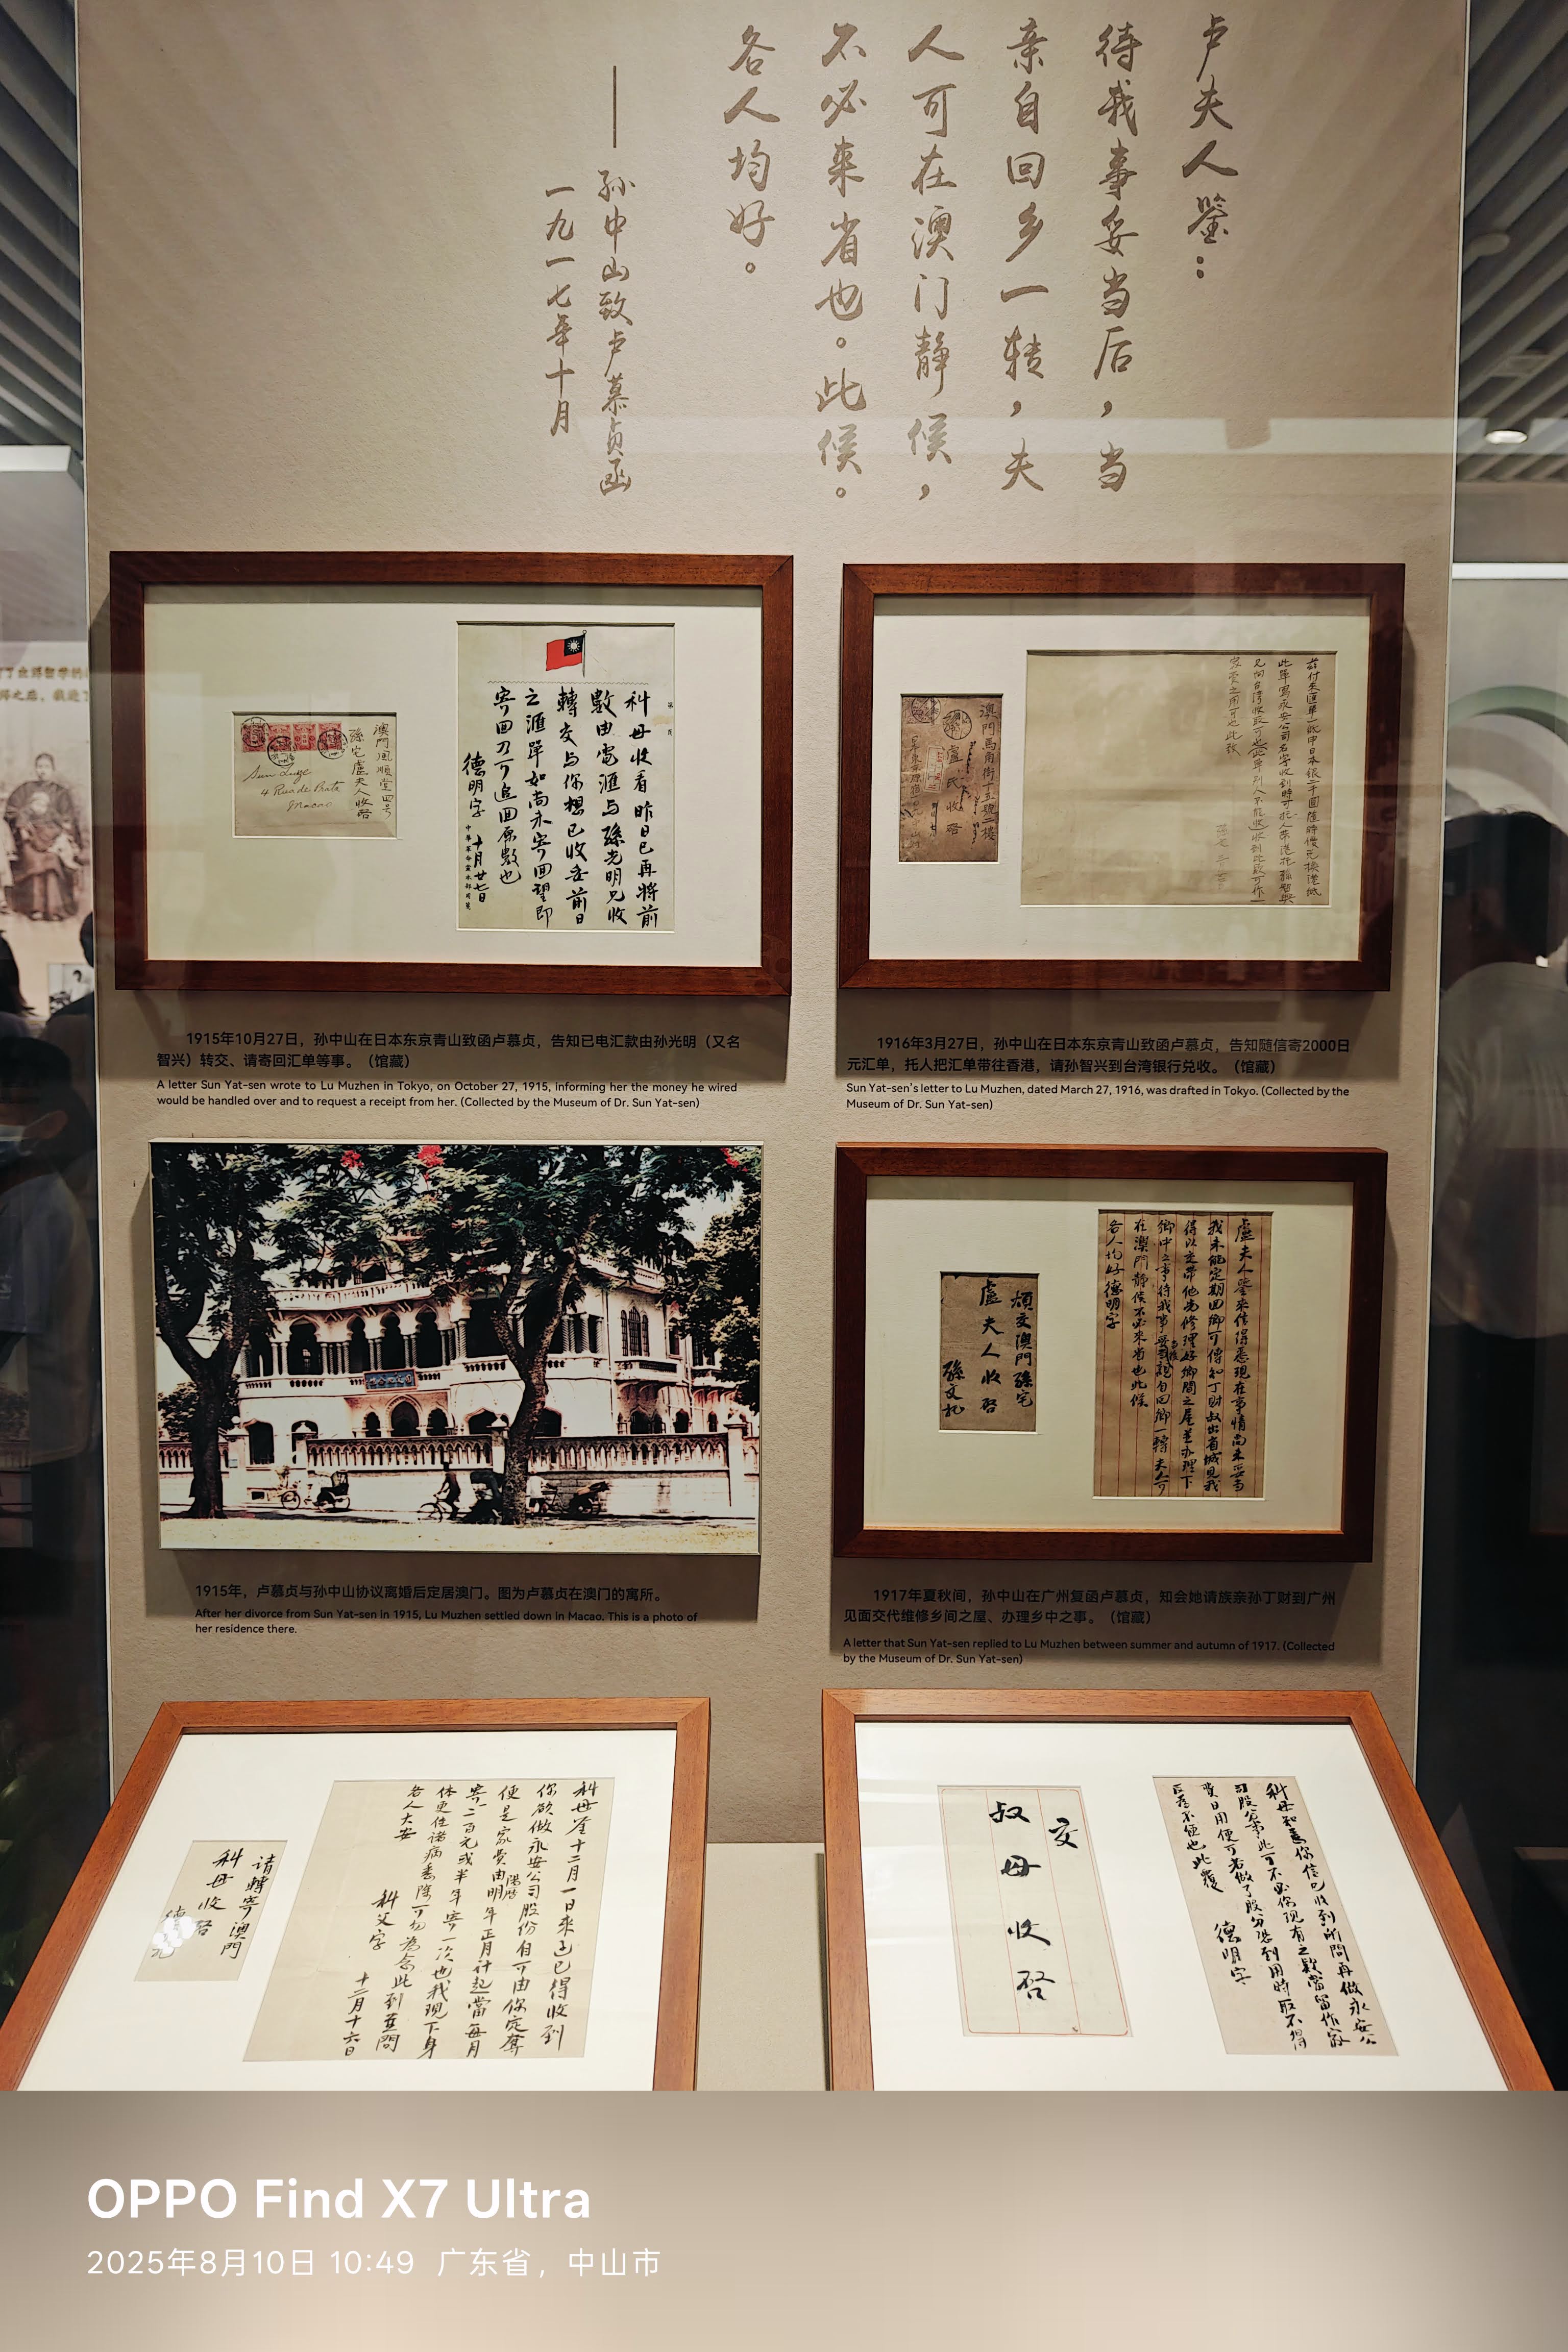 卢夫人鉴：
待我事妥当后，当
亲自回乡一转，夫
人可在澳门静候，
不必来省也。此候。
各人均好。
——孙中山致卢慕贞函
一九一七年十月
澳門風順堂四号
孫宅盧夫人收啓
Sun Luze
4 Rua de Prata
Macao
科母收看昨日已再將前
數由電滙与孫光明兄收
轉交与你想已收妥前日
之滙單如尚未寄回望即
寄回刀可追回原數也
德明字 十月廿七日
澳門馬角街十五號二樓
盧氏收啓
1915年10月27日，孙中山在日本东京青山致函卢慕贞，告知已电汇款由孙光明（又名
智兴）转交、请寄回汇单等事。（馆藏）
A letter Sun Yat-sen wrote to Lu Muzhen in Tokyo, on October 27, 1915, informing her the money he wired
would be handled over and to request a receipt from her. (Collected by the Museum of Dr. Sun Yat-sen)
1916年3月27日，孙中山在日本东京青山致函卢慕贞，告知随信寄2000日
元汇单，托人把汇单带往香港，请孙智兴到台湾银行兑收。（馆藏）
Sun Yat-sen's letter to Lu Muzhen, dated March 27, 1916, was drafted in Tokyo. (Collected by the
Museum of Dr. Sun Yat-sen)
煩交澳門孫宅
盧夫人收啓
孫文托
盧夫人鑒来信得悉現在事情尚未妥当
我未能定期回鄉可傳知丁財叔出省城見我
得以交帶他為修理好鄉間之屋並办理下
鄉中之事待我事妥當親自回鄉一轉夫人可
在澳門静侯不必来省也此候
各人均好德明字
1915年，卢慕贞与孙中山协议离婚后定居澳门。图为卢慕贞在澳门的寓所。
After her divorce from Sun Yat-sen in 1915, Lu Muzhen settled down in Macao. This is a photo of
her residence there.
1917年夏秋间，孙中山在广州复函卢慕贞，知会她请族亲孙丁财到广州
见面交代维修乡间之屋、办理乡中之事。（馆藏）
A letter that Sun Yat-sen replied to Lu Muzhen between summer and autumn of 1917. (Collected
by the Museum of Dr. Sun Yat-sen)
请轉寄澳門
科母收啓
科母鉴十二月一日来函已得收到
你欲做永安公司股份自可由你定奪
便是家費由陽曆明年正月計起當每月
寄二百元或半年寄一次也我現下身
体更佳諸病悉除可勿為念此到并問
各人大安
科父字
十二月十六日
交
叔母收啓
科母知悉你信已收到所問再做永安公
司股分事此可不必你現有之款當留作家
費日用便可若做了股分恐到用時取不得
反為不便也此覆
德明字
OPPO Find X7 Ultra
2025年8月10日 10:49 广东省，中山市